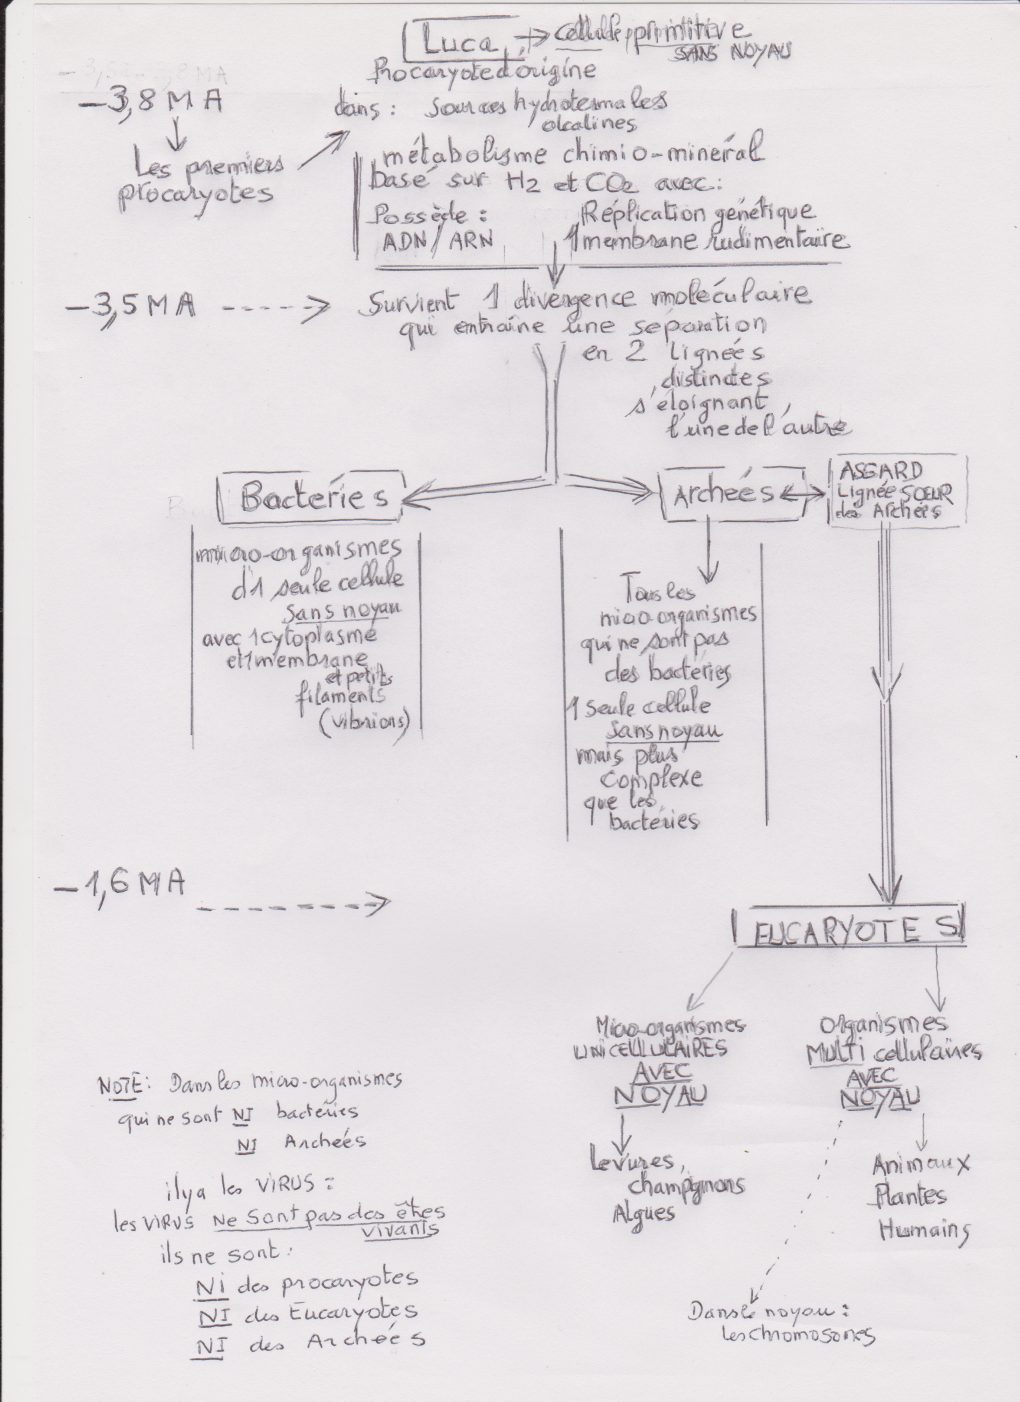 Luca → cellule primitive
SANS NOYAU
Procaryote d'origine
-3,8 MA
dans : sources hydrotermales
alcalines
Les premiers
procaryotes
métabolisme chimio-minéral
basé sur H2 et CO2 avec :
Possède : Réplication génétique
ADN/ARN 1 membrane rudimentaire
-3,5 MA ----> Survient 1 divergence moléculaire
qui entraîne une séparation
en 2 lignées
distinctes
s'éloignant
l'une de l'autre
Bactéries
Archeés
ASGARD
Lignée SOEUR
des Archées
micro-organismes
d'1 seule cellule
sans noyau
avec 1 cytoplasme
et 1 membrane
et petits
filaments
(vibrions)
Tous les
micro organismes
qui ne sont pas
des bactéries
1 seule cellule
sans noyau
mais plus
complexe
que les
bactéries
-1,6 MA
EUCARYOTES
Micro-organismes
UNICELLULAIRES
AVEC
NOYAU
Levures,
champignons
Algues
Organismes
MULTI cellulaires
AVEC
NOYAU
Animaux
Plantes
Humains
Dans le noyau :
les chromosones
NOTE : Dans les micro-organismes
qui ne sont NI bactéries
NI Archées
il y a les VIRUS :
les VIRUS Ne Sont pas des êtres
vivants
ils ne sont :
NI des procaryotes
NI des Eucaryotes
NI des Archées